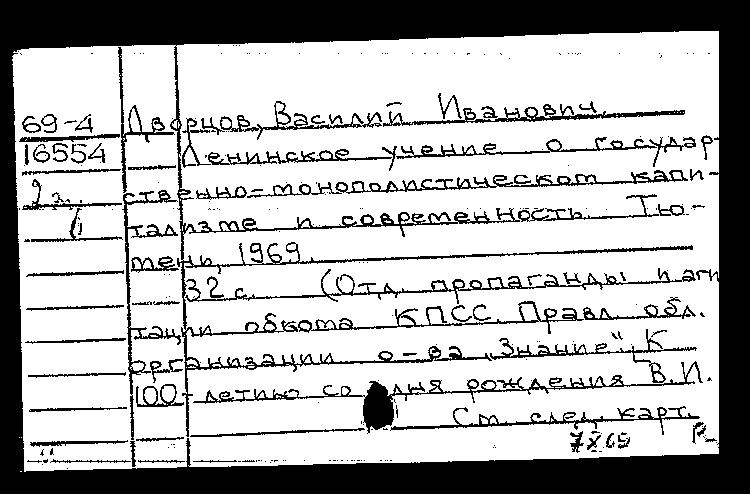 69-4 Дворцов, Василий Иванович.
16554 Ленинское учение о государ-
2 э. ственно-монополистическом капи-
тализме и современность. Тю-
мень, 1969.
32 с. (Отд. пропаганды и аги
тации обкома КПСС. Правл. обл.
организации о-ва „Знание". К
100-летию со дня рождения В.И.
См. след. карт.
7 X 69